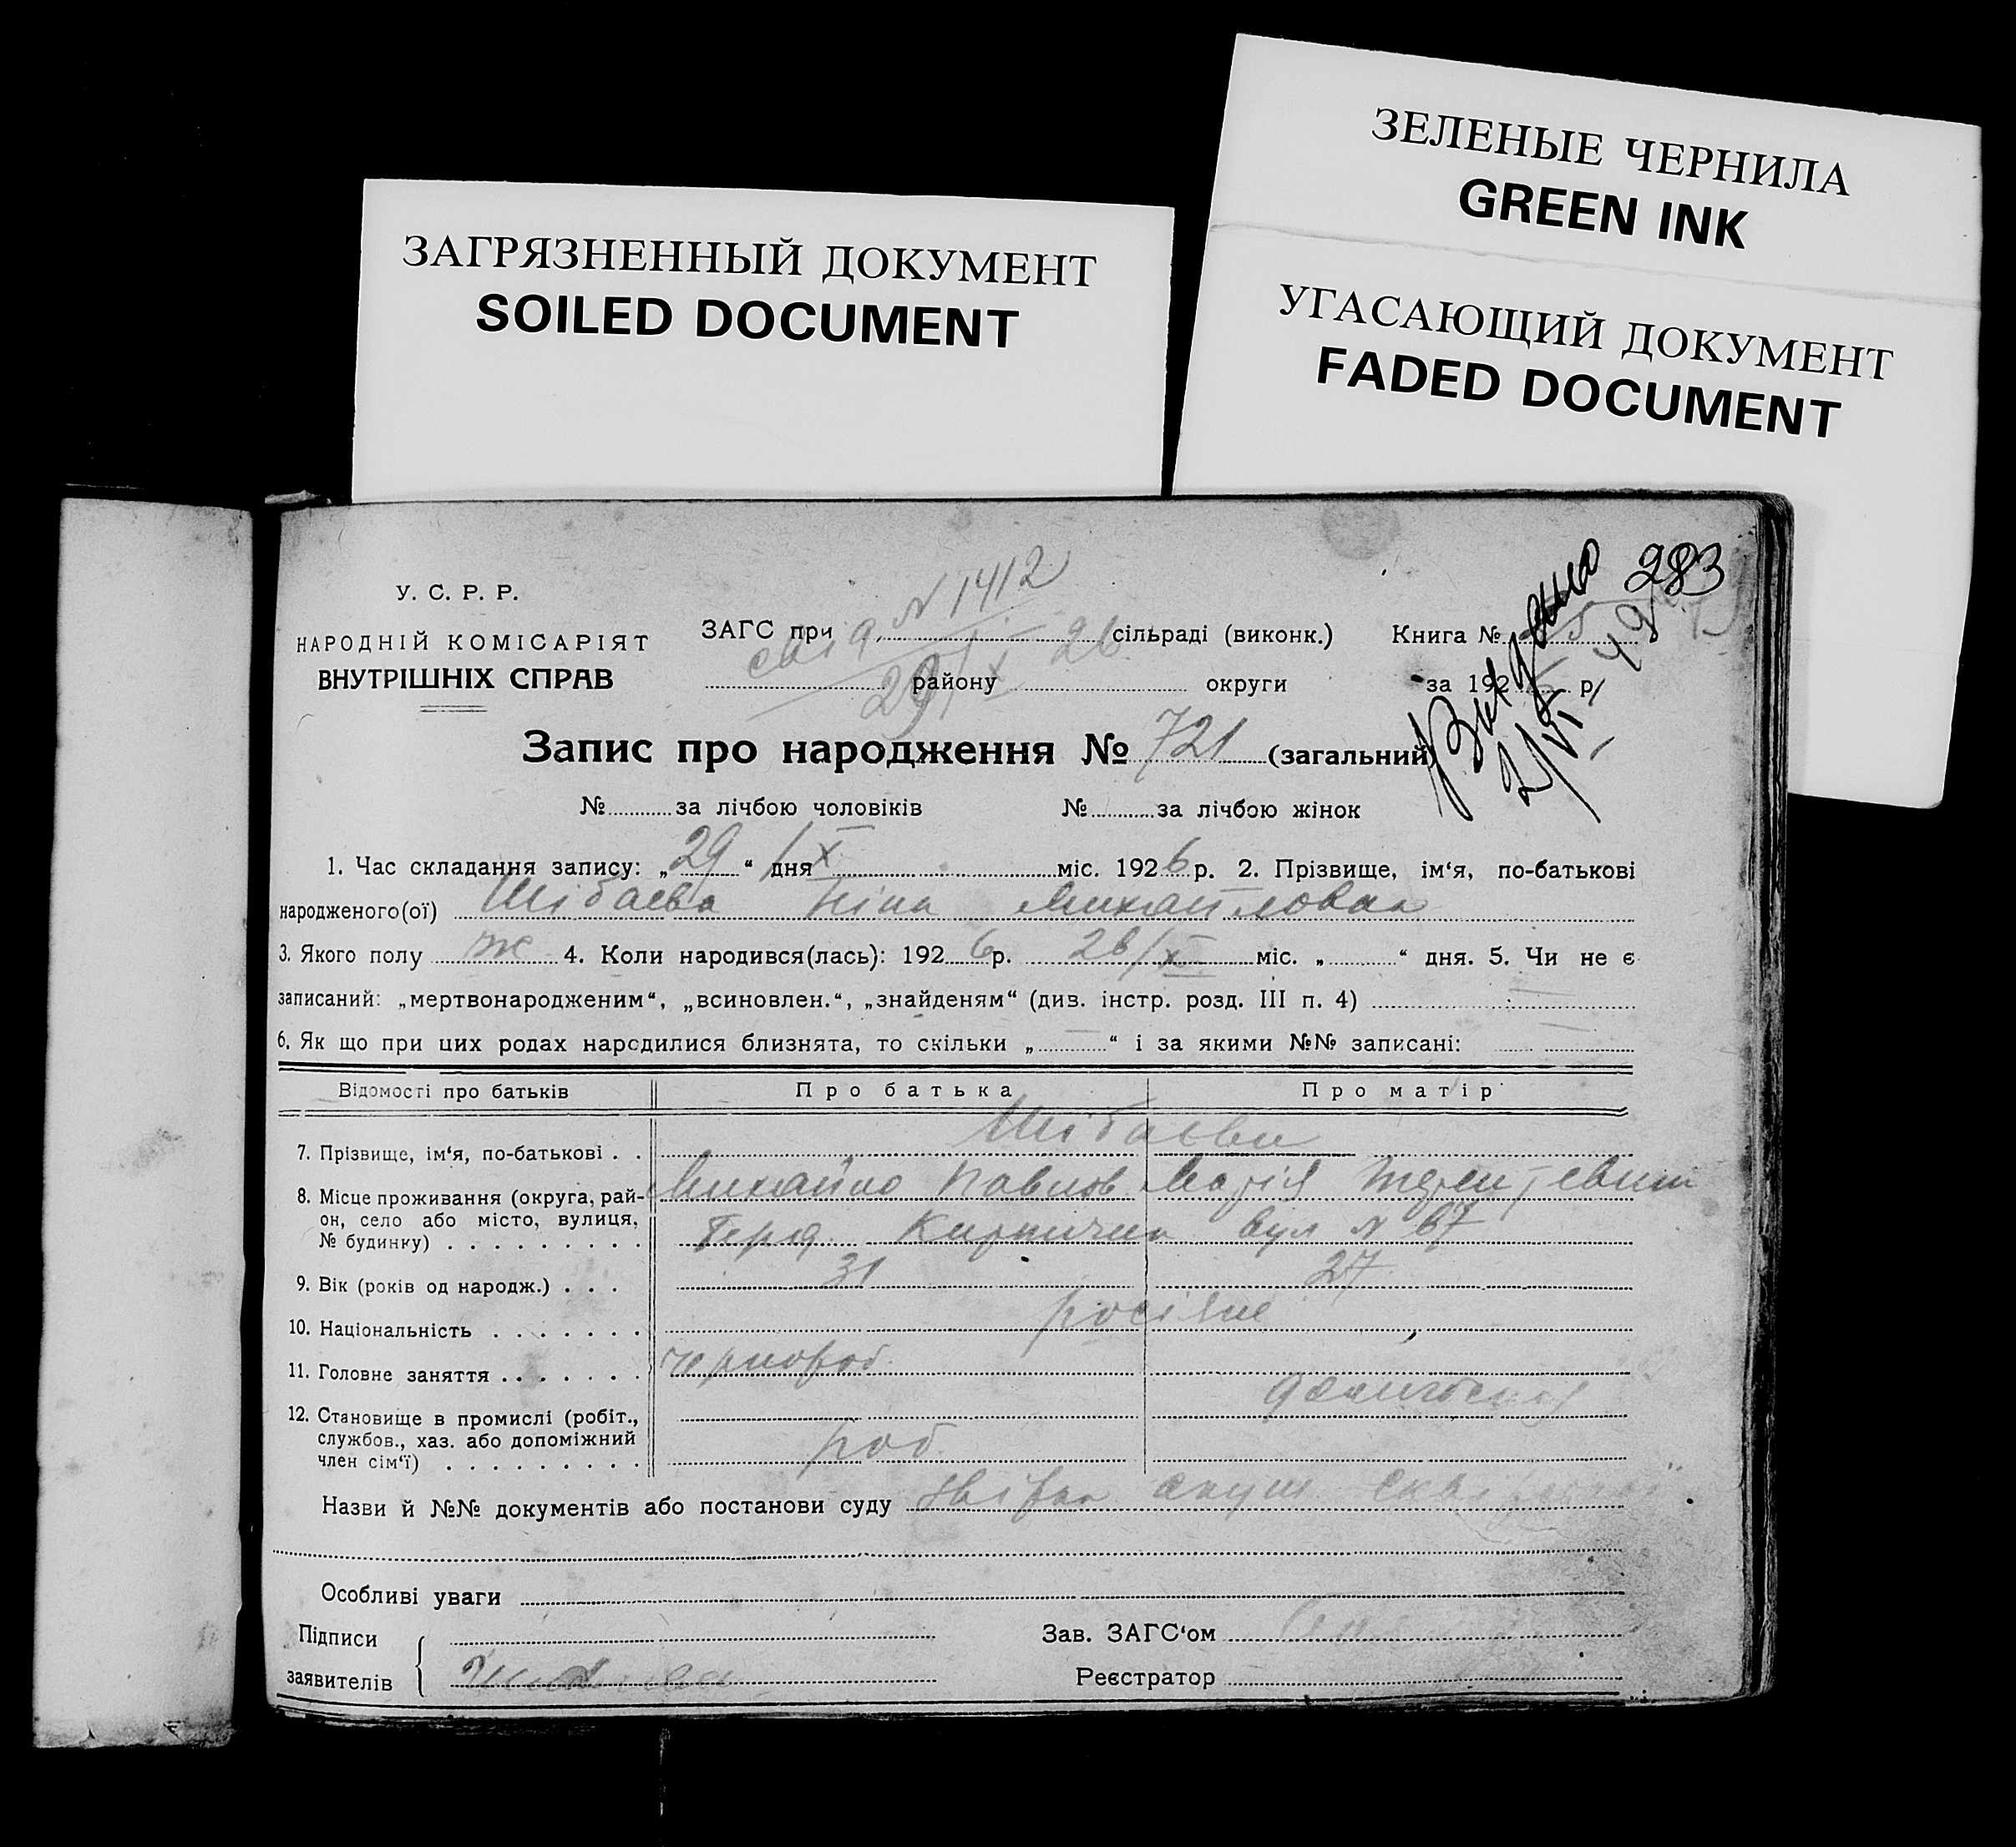 ЗЕЛЕНЫЕ ЧЕРНИЛА
GREEN INK
ЗАГРЯЗНЕННЫЙ ДОКУМЕНТ
SOILED DOCUMENT
УГАСАЮЩИЙ ДОКУМЕНТ
FADED DOCUMENT
283
У. С. Р. Р.
НАРОДНІЙ КОМІСАРІЯТ
ВНУТРІШНІХ СПРАВ
N 1412
29/X 26
ЗАГС при сільраді (виконк.) Книга №
району округи за 192 р.
Видано
Запис про народження № 721 (загальний)
№ за лічбою чоловіків № за лічбою жінок
1. Час складання запису: „ 29 “ дня X міс. 1926 р. 2. Прізвище, ім‘я, по-батькові
народженого(ої) Шібаєва Ніна Михайловна
3. Якого полу ж 4. Коли народився(лась): 1926 р. 26/X міс. „ “ дня. 5. Чи не є
записаний: „мертвонародженим“, „всиновлен.“, „знайденям“ (див. інстр. розд. III п. 4)
6. Як що при цих родах народилися близнята, то скільки „ “ і за якими №№ записані:
Відомості про батьків Про батька Про матір
7. Прізвище, ім‘я, по-батькові . . Шібаєви
Михайло Павлов Марія
8. Місце проживання (округа, рай-
он, село або місто, вулиця,
№ будинку) . . . . . . . . . Кирпична вул N 67
9. Вік (років од народж.) . . . 31 27
10. Національність . . . . . . . росіяне
11. Головне заняття . . . . . . . чернороб.
12. Становище в промислі (робіт.,
службов., хаз. або допоміжний
член сім‘ї) . . . . . . . . . роб
Назви й №№ документів або постанови суду акуш
Особливі уваги
Підписи
заявителів
Зав. ЗАГС‘ом
Реєстратор